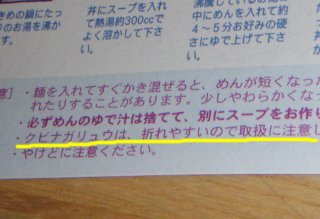 きめの鍋にたっ
のお湯を沸か
丼にスープを入れ
て熱湯約300ccで
よく溶かして下さ
沸騰しているお湯
中にめんを入れて約
4〜5分お好みの硬
さにゆで上げて下さ
意］・麺を入れてすぐかき混ぜると、めんが短くなった
れたりすることがあります。少しやわらかくなっ
・必ずめんのゆで汁は捨てて、別にスープをお作り
・クビナガリュウは、折れやすいので取扱に注意し
・やけどに注意ください。